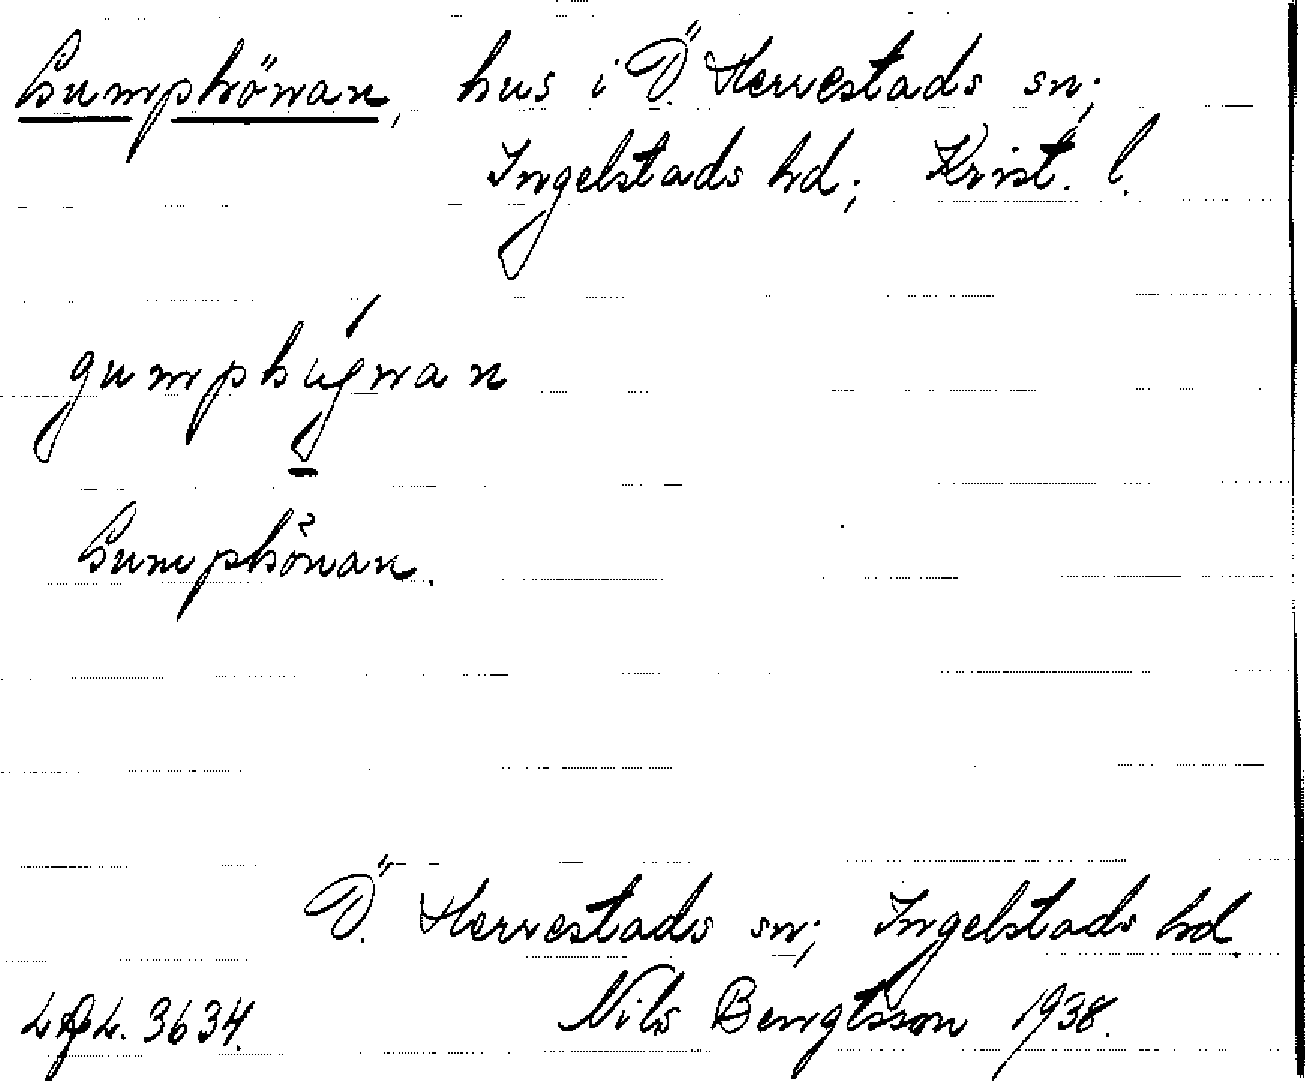 Gumphönan, hus i Ö. Herrestads sn;
Ingelstads hd; Krist. l.
Gumphönan.
Ö. Herrestads sn; Ingelstads hd.
3634. Nils Bengtsson 1938.